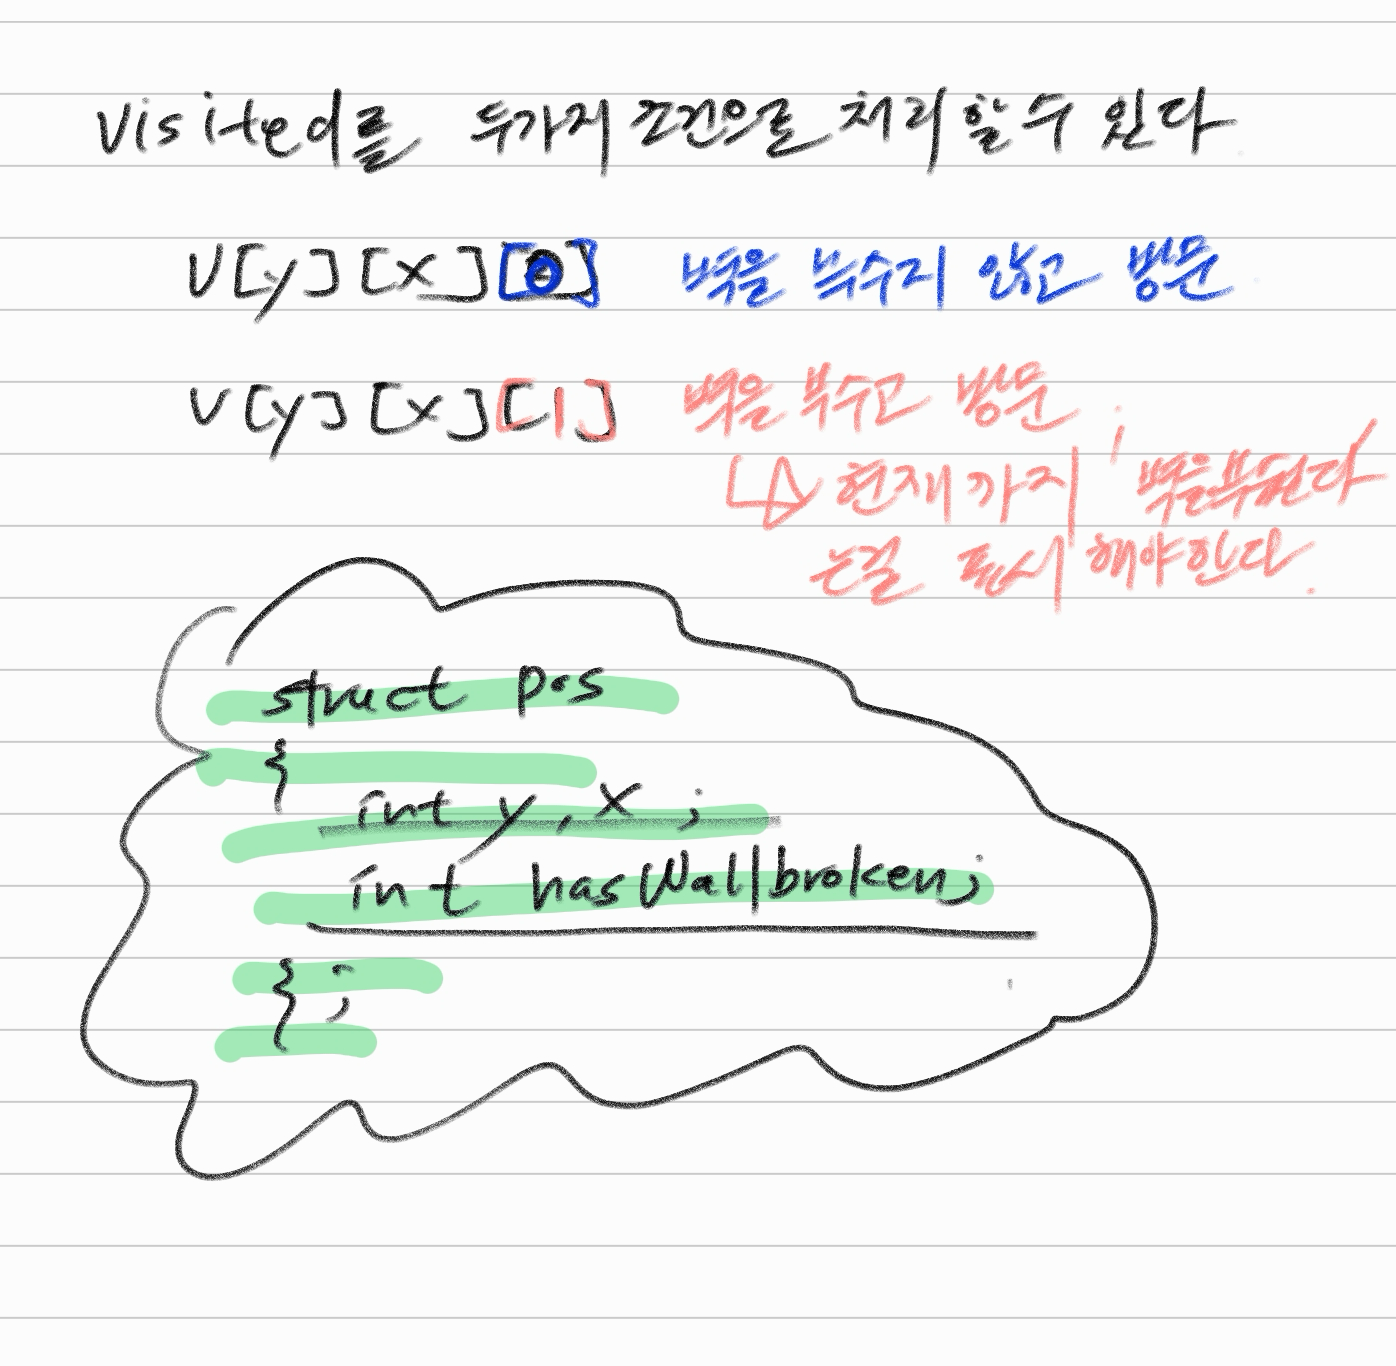 visited를 두가지 조건으로 처리할 수 있다
V[y][x][0] 벽을 부수지 않고 방문
V[y][x][1] 벽을 부수고 방문
↳ 현재까지 벽을 부쉈다
는걸 표시 해야한다.
struct pos
{
int y, x ;
int hasWallbroken;
{ ;